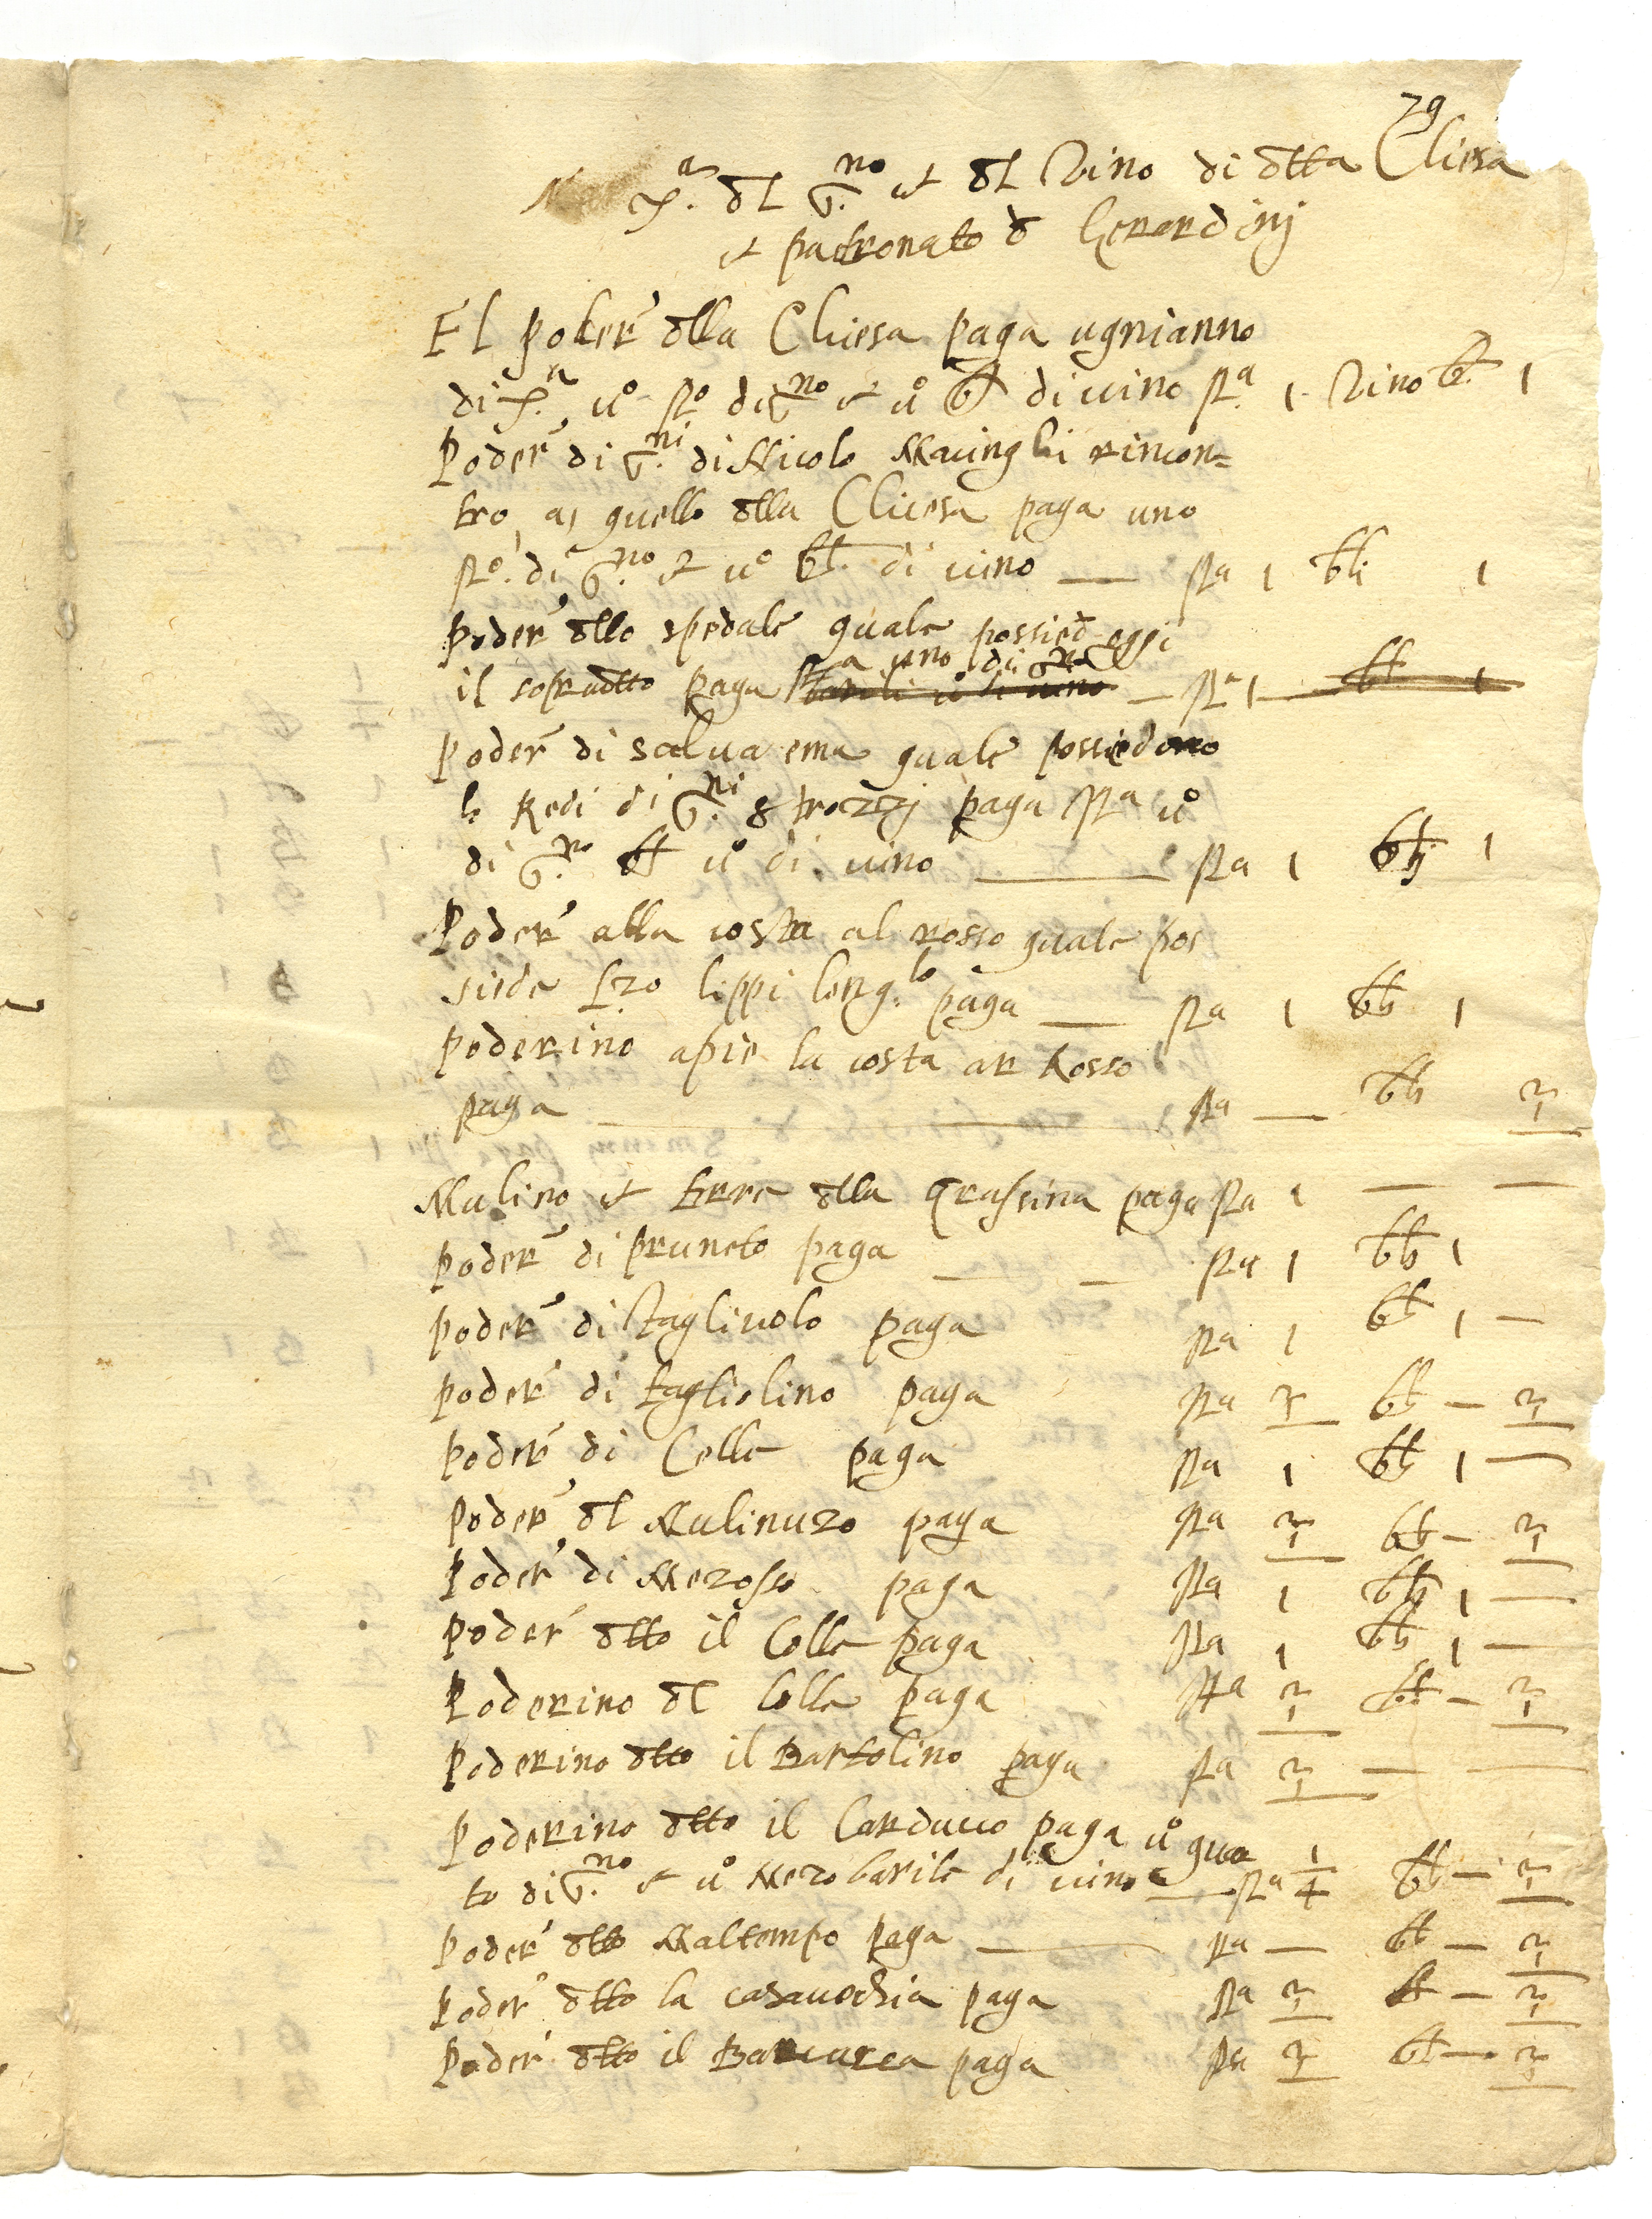 79
X.a dl G.no et dl Vino di dtta Chiesa
et patronato d Gerardinj
El Poder' dlla Chiesa paga ugnianno
di X.a uo sto di G.no et uo bl di vino sta 1 Vino bl. 1
Poder' di G.ni di Nicolo Macinghi rincon=
tro a quello dlla Chiesa paga uno
sto. di G.no et uo bl. di vino — sta 1 bli 1
Poder' dllo spedale quale possied oggi
il sopradtto paga sta uno di Gno barili uo di vino — sta 1 — bl 1
Poder' di Salva ema quale possiedono
le Redi di G.ni Strozzj paga sta uo
di G.no bl uo di vino — sta 1 blj 1
Poder' alla costa al rosso quale pos
siede Lzo lippi long.lo paga — sta 1 bli 1
Poderino apie la costa ar Rosso
paga — sta — bli 1/2
Mulino et terre dlla Grassina paga sta 1 — —
Poder' di Pruneto paga — — sta 1 bli 1
Poder' di Tagliuolo paga sta 1 bli 1 —
Poder' di tagliolino paga sta 1/2 bli — 1/2
Poder' di Celle paga sta 1 bli 1 —
Poder' dl Mulinuzo paga sta 1/2 bli — 1/2
Poder' di Mezosso paga sta 1 bli 1 —
Poder' dtto il Colle paga sta 1 bli 1 —
Poderino dl Colle paga sta 1/2 bl — 1/2
Poderino dtto il Bartolino paga sta 1/2 — —
Poderino dtto il Carducco paga uo qua
to di G.no et uo mezo barile di vino — sta 1/4 bl — 1/2
Poder' dtto Maltempo paga — sta — bl — 1/2
Poder' dtto la casavechia paga sta 1/2 bl — 1/2
Poder' dtto il paga sta 1/2 bl — 1/2